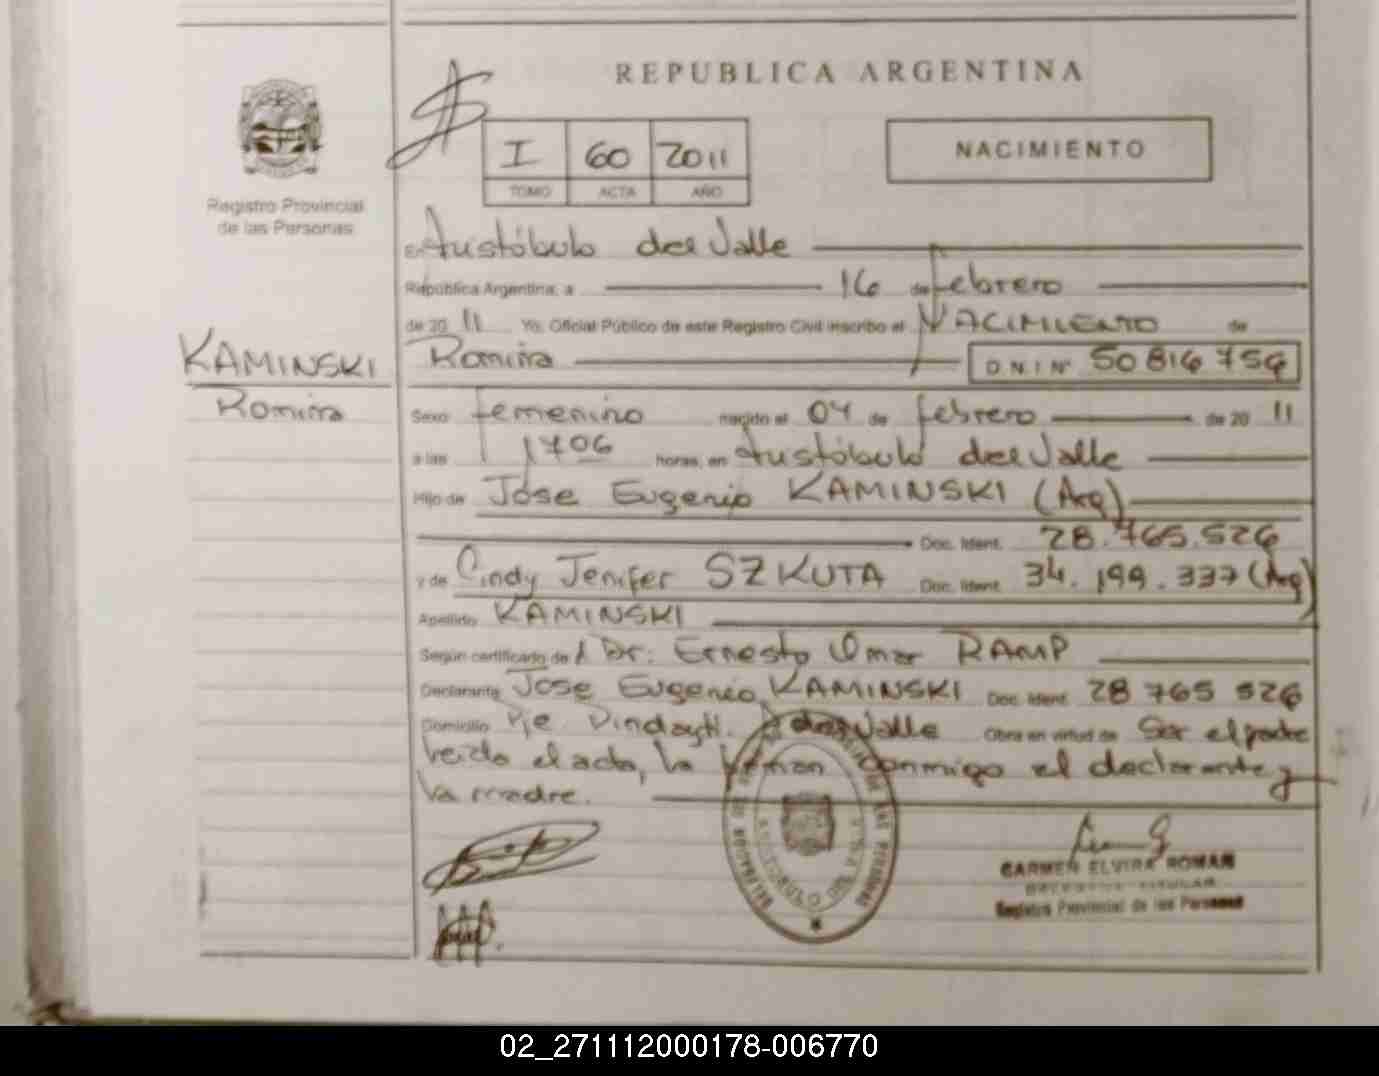 REPUBLICA ARGENTINA
I 60 2011
TOMO ACTA AÑO
NACIMIENTO
Registro Provincial
de las Personas
En Aristóbulo del Valle
República Argentina, a 16 de febrero
de 20 11 Yo, Oficial Público de este Registro Civil inscribo el NACIMIENTO de
KAMINSKI
Romina
Romina D N I Nº 50 816 756
Sexo femenino nacido el 04 de febrero de 20 11
a las 1706 horas, en Aristóbulo del Valle
Hijo de Jose Eugenio KAMINSKI (Arg)
Doc. Ident. 28.765.526
y de Cindy Jenifer SZKUTA Doc. Ident. 34.199.337 (Arg)
Apellido KAMINSKI
Según certificado de Dr. Ernesto Omar RAMP
Declarante Jose Eugenio KAMINSKI Doc. Ident. 28 765 526
Domicilio Pje del Valle Obra en virtud de Ser el padre
leido el acta, la firman conmigo el declarante y
la madre.
CARMEN ELVIRA ROMAN
DELEGADA TITULAR
Registro Provincial de las Personas
02_271112000178-006770